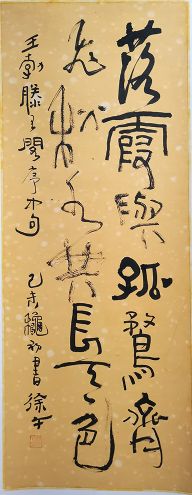 落霞與孤鶩齊
飛秋水共長天一色
王勃滕王閣序中句 乙未龝初書徐